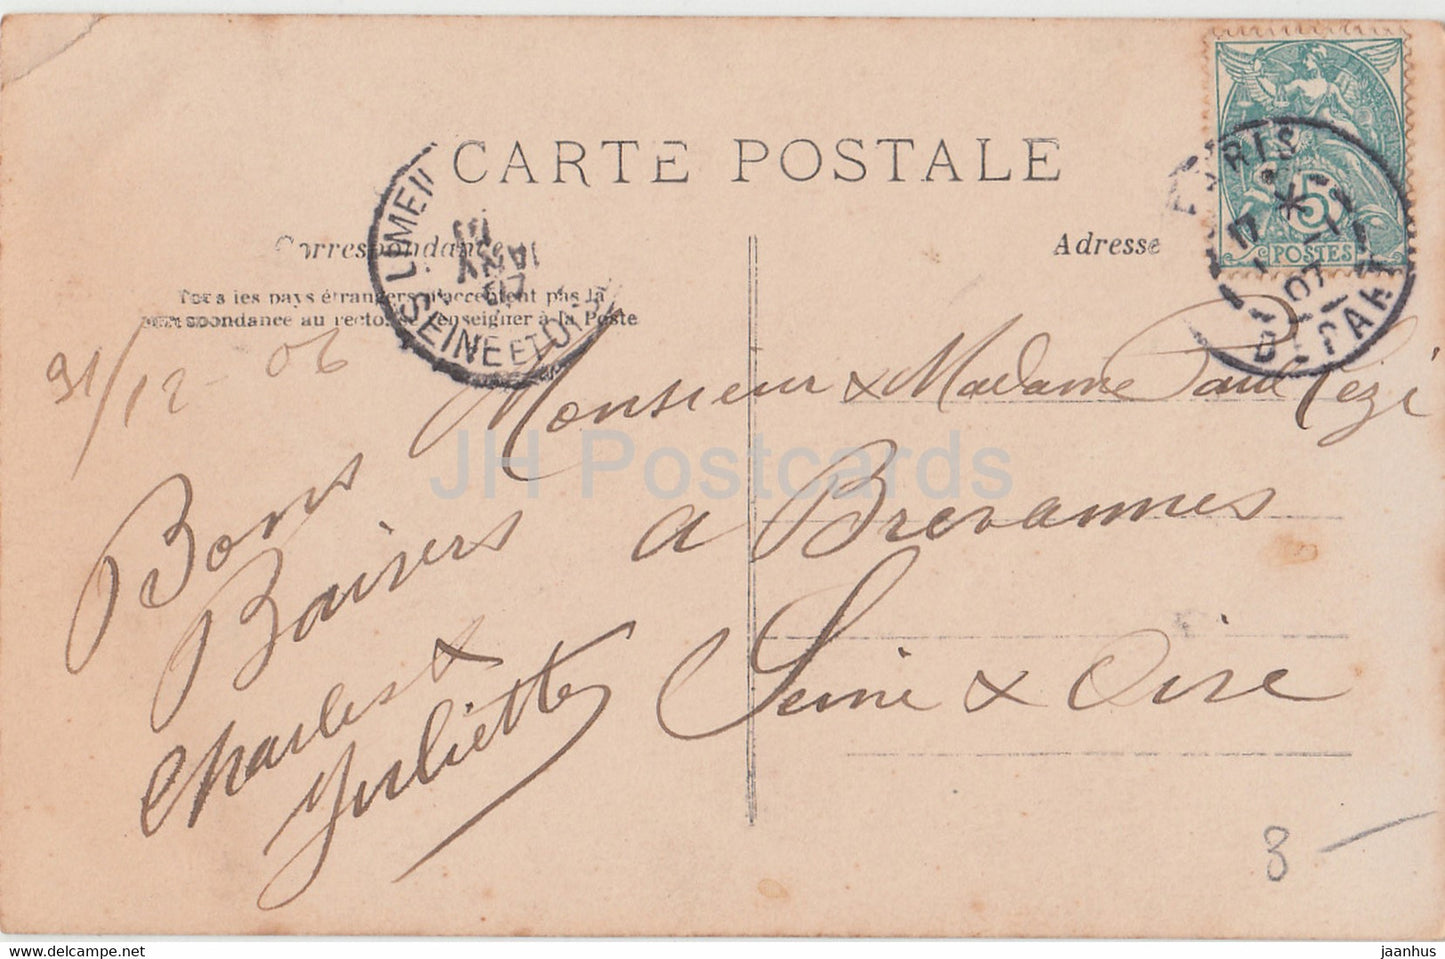 CARTE POSTALE
Correspondance
Adresse
Tous les pays étrangers n'acceptent pas la
correspondance au recto, se renseigner à la Poste
5
POSTES
PARIS
17
07
DEPART
LIMEIL
SEINE ET O
JANV
07
31/12-06
Bons
Baisers
Charles &
Juliette
Monsieur & Madame Paul
a Brevannes
Seine & Oise
JH Postcards
8 -
www.delcampe.net
jaanhus